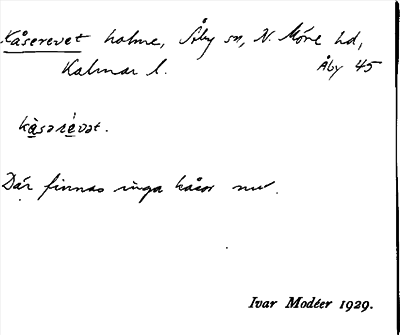 Kåserevet holme, Åby sn, N. Möre hd,
Kalmar l. Åby 45
kåsərévət.
Där finnas inga kåsor nu.
Ivar Modéer 1929.